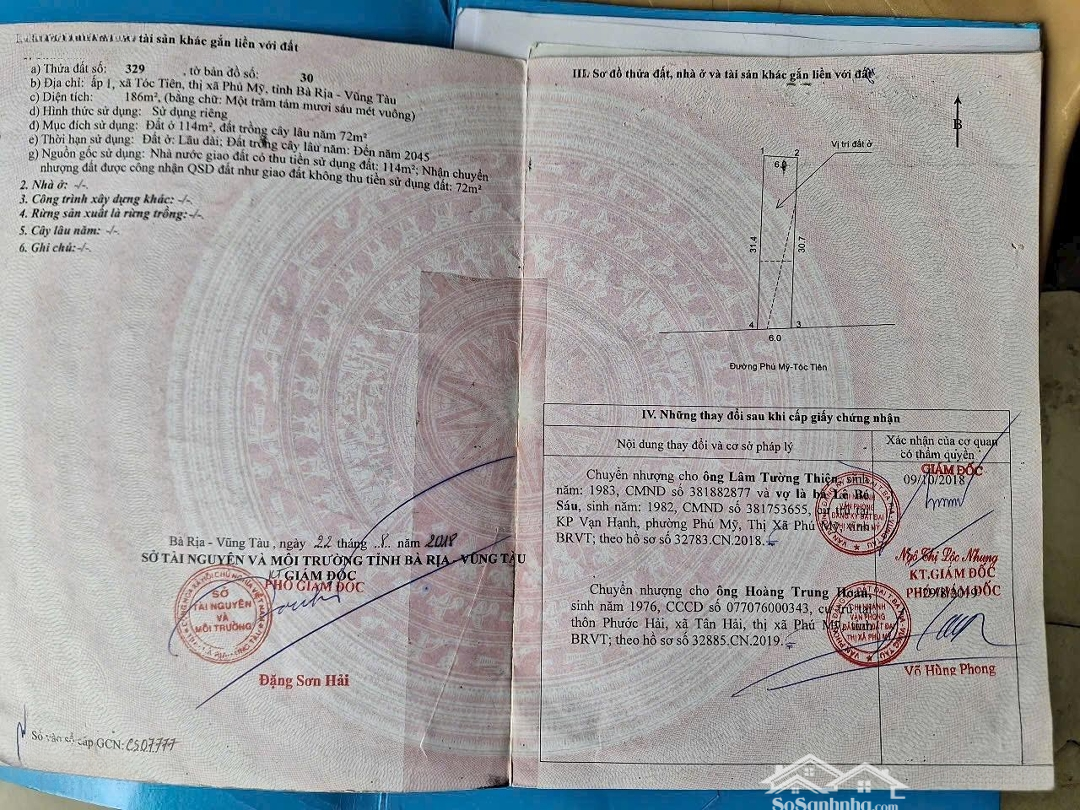 tài sản khác gắn liền với đất
a) Thửa đất số: 329 , tờ bản đồ số: 30
b) Địa chỉ: ấp 1, xã Tóc Tiên, thị xã Phú Mỹ, tỉnh Bà Rịa - Vũng Tàu
c) Diện tích: 186m², (bằng chữ: Một trăm tám mươi sáu mét vuông)
d) Hình thức sử dụng: Sử dụng riêng
đ) Mục đích sử dụng: Đất ở 114m², đất trồng cây lâu năm 72m²
e) Thời hạn sử dụng: Đất ở: Lâu dài; Đất trồng cây lâu năm: Đến năm 2045
g) Nguồn gốc sử dụng: Nhà nước giao đất có thu tiền sử dụng đất: 114m²; Nhận chuyển
nhượng đất được công nhận QSD đất như giao đất không thu tiền sử dụng đất: 72m²
2. Nhà ở: -/-.
3. Công trình xây dựng khác: -/-
4. Rừng sản xuất là rừng trồng: -/-.
5. Cây lâu năm: -/-.
6. Ghi chú: -/-.
Bà Rịa - Vũng Tàu , ngày 22 tháng 8 năm 2018
SỞ TÀI NGUYÊN VÀ MÔI TRƯỜNG TỈNH BÀ RỊA - VŨNG TÀU
KT GIÁM ĐỐC
PHÓ GIÁM ĐỐC
SỞ
TÀI NGUYÊN
VÀ
MÔI TRƯỜNG
Đặng Sơn Hải
Số vào sổ cấp GCN: CS07777
III. Sơ đồ thửa đất, nhà ở và tài sản khác gắn liền với đất
B
Vị trí đất ở
1
2
31.4
30.7
4
3
6.0
Đường Phú Mỹ-Tóc Tiên
IV. Những thay đổi sau khi cấp giấy chứng nhận
Nội dung thay đổi và cơ sở pháp lý
Xác nhận của cơ quan
có thẩm quyền
Chuyển nhượng cho ông Lâm Tường Thiện, sinh
năm: 1983, CMND số 381882877 và vợ là bà Lê Bé
Sáu, sinh năm: 1982, CMND số 381753655, cư trú tại
KP Vạn Hạnh, phường Phú Mỹ, Thị Xã Phú Mỹ, tỉnh
BRVT; theo hồ sơ số 32783.CN.2018.
GIÁM ĐỐC
09/10/2018
Ngô Thị Lộc Nhung
Chuyển nhượng cho ông Hoàng Trung Hoan,
sinh năm 1976, CCCD số 077076000343, cư trú tại
thôn Phước Hải, xã Tân Hải, thị xã Phú Mỹ, tỉnh
BRVT; theo hồ sơ số 32885.CN.2019.
KT.GIÁM ĐỐC
PHÓ GIÁM ĐỐC
CHI NHÁNH
VĂN PHÒNG
ĐĂNG KÝ ĐẤT ĐAI
THỊ XÃ PHÚ MỸ
Võ Hùng Phong
SoSanhnha.com